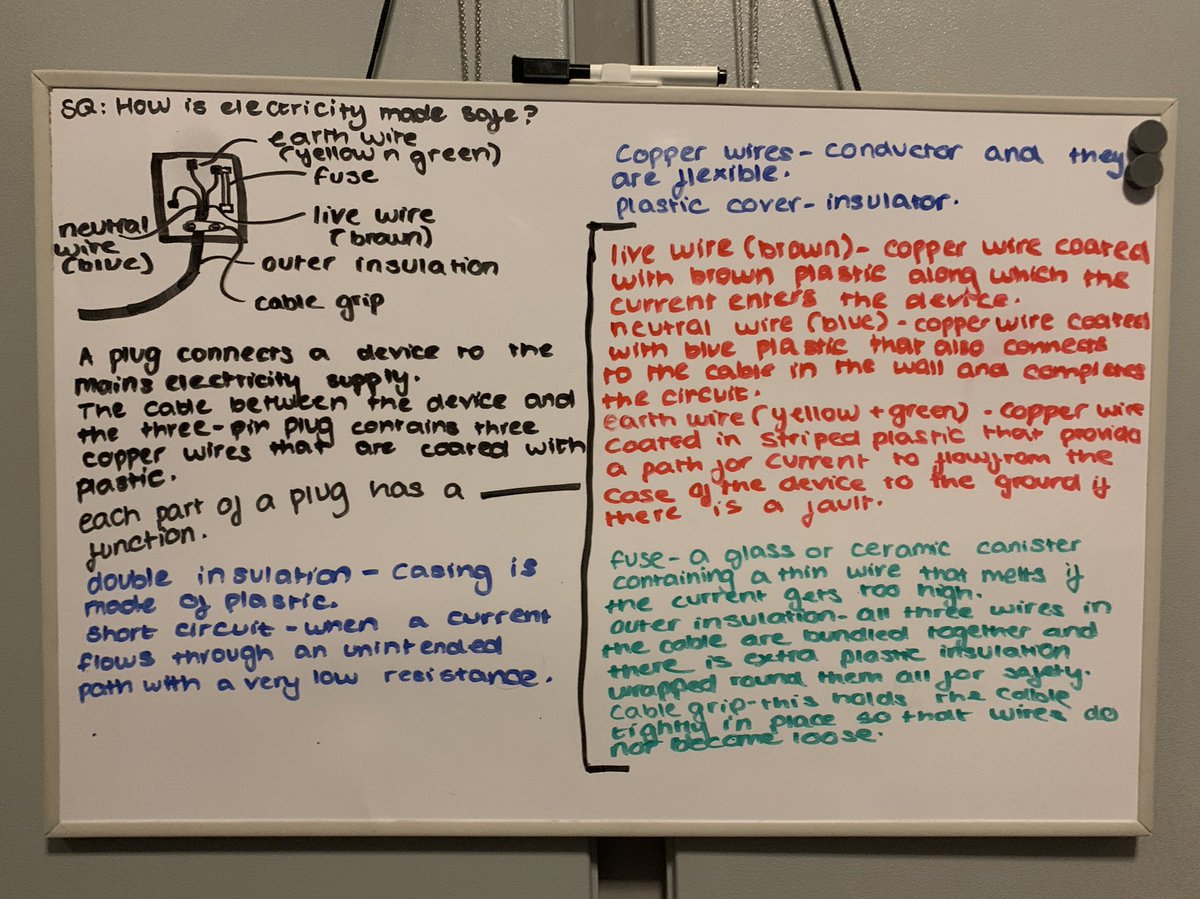 SQ: How is electricity made safe?
earth wire
(yellow n green)
fuse
live wire
(brown)
neutral
wire
(blue)
outer insulation
cable grip
A plug connects a device to the
mains electricity supply.
The cable between the device and
the three-pin plug contains three
copper wires that are coated with
plastic.
each part of a plug has a
function.
double insulation - casing is
made of plastic.
short circuit - when a current
flows through an unintended
path with a very low resistance.
Copper wires - conductor and they
are flexible.
plastic cover - insulator.
live wire (brown) - copper wire coated
with brown plastic along which the
current enters the device.
neutral wire (blue) - copper wire coated
with blue plastic that also connects
to the cable in the wall and completes
the circuit.
earth wire (yellow + green) - copper wire
coated in striped plastic that provide
a path for current to flow from the
case of the device to the ground if
there is a fault.
fuse - a glass or ceramic canister
containing a thin wire that melts if
the current gets too high.
outer insulation - all three wires in
the cable are bundled together and
there is extra plastic insulation
wrapped round them all for safety.
cable grip - this holds the cable
tightly in place so that wires do
not become loose.